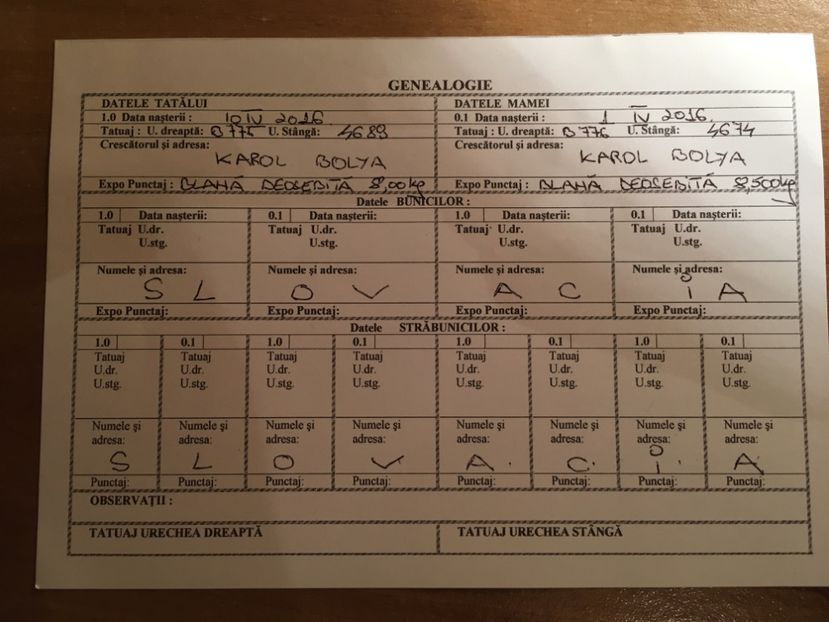 GENEALOGIE
DATELE TATĂLUI DATELE MAMEI
1.0 Data nașterii : 10 IV 2016 0.1 Data nașterii : 1 IV 2016.
Tatuaj : U. dreaptă: B 775 U. Stângă: 4689 Tatuaj : U. dreaptă: B 776 U. Stângă: 4674
Crescătorul și adresa: Crescătorul și adresa:
KAROL BOLYA KAROL BOLYA
Expo Punctaj : BLAHĂ DEOSEBITĂ 8,00kg Expo Punctaj : BLAHĂ DEOSEBITĂ 8,500kg
Datele BUNICILOR :
1.0 Data nașterii: 0.1 Data nașterii: 1.0 Data nașterii: 0.1 Data nașterii:
Tatuaj U.dr. Tatuaj U.dr. Tatuaj U.dr. Tatuaj U.dr.
U.stg. U.stg. U.stg. U.stg.
Numele și adresa: Numele și adresa: Numele și adresa: Numele și adresa:
S L O V A C i A
Expo Punctaj: Expo Punctaj: Expo Punctaj: Expo Punctaj:
Datele STRĂBUNICILOR :
1.0 0.1 1.0 0.1 1.0 0.1 1.0 0.1
Tatuaj Tatuaj Tatuaj Tatuaj Tatuaj Tatuaj Tatuaj Tatuaj
U.dr. U.dr. U.dr. U.dr. U.dr. U.dr. U.dr. U.dr.
U.stg. U.stg. U.stg. U.stg. U.stg. U.stg. U.stg. U.stg.
Numele și Numele și Numele și Numele și Numele și Numele și Numele și Numele și
adresa: adresa: adresa: adresa: adresa: adresa: adresa: adresa:
S L O V A. C. i. A
Punctaj: Punctaj: Punctaj: Punctaj: Punctaj: Punctaj: Punctaj: Punctaj:
OBSERVAȚII :
TATUAJ URECHEA DREAPTĂ TATUAJ URECHEA STÂNGĂ